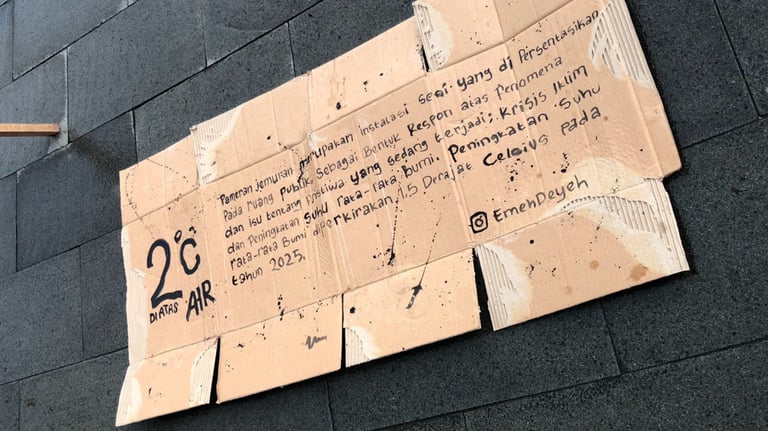 2°C
DIATAS AIR
Pameran Jemuran merupakan instalasi seni yang di Persentasikan
Pada ruang Publik Sebagai Bentuk Respon atas fenomena
dan Isu tentang Pristiwa yang sedang terjadi; Krisis Iklim
dan Peningkatan Suhu rata-rata Bumi. Peningkatan Suhu
rata-rata Bumi diperkirakan 1.5 Derajat Celsius Pada
tahun 2025.
EmehDeyeh